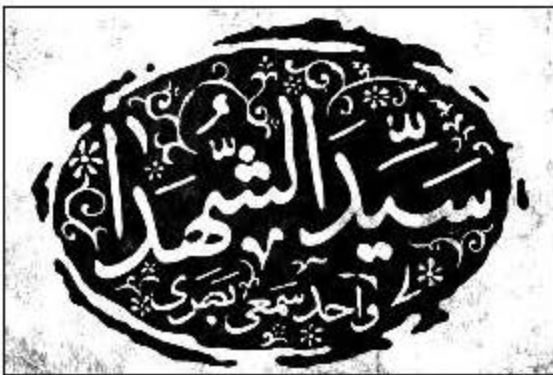 سَیِّدَ الشُّهَدٰا
واحد سَمعی بَصَری